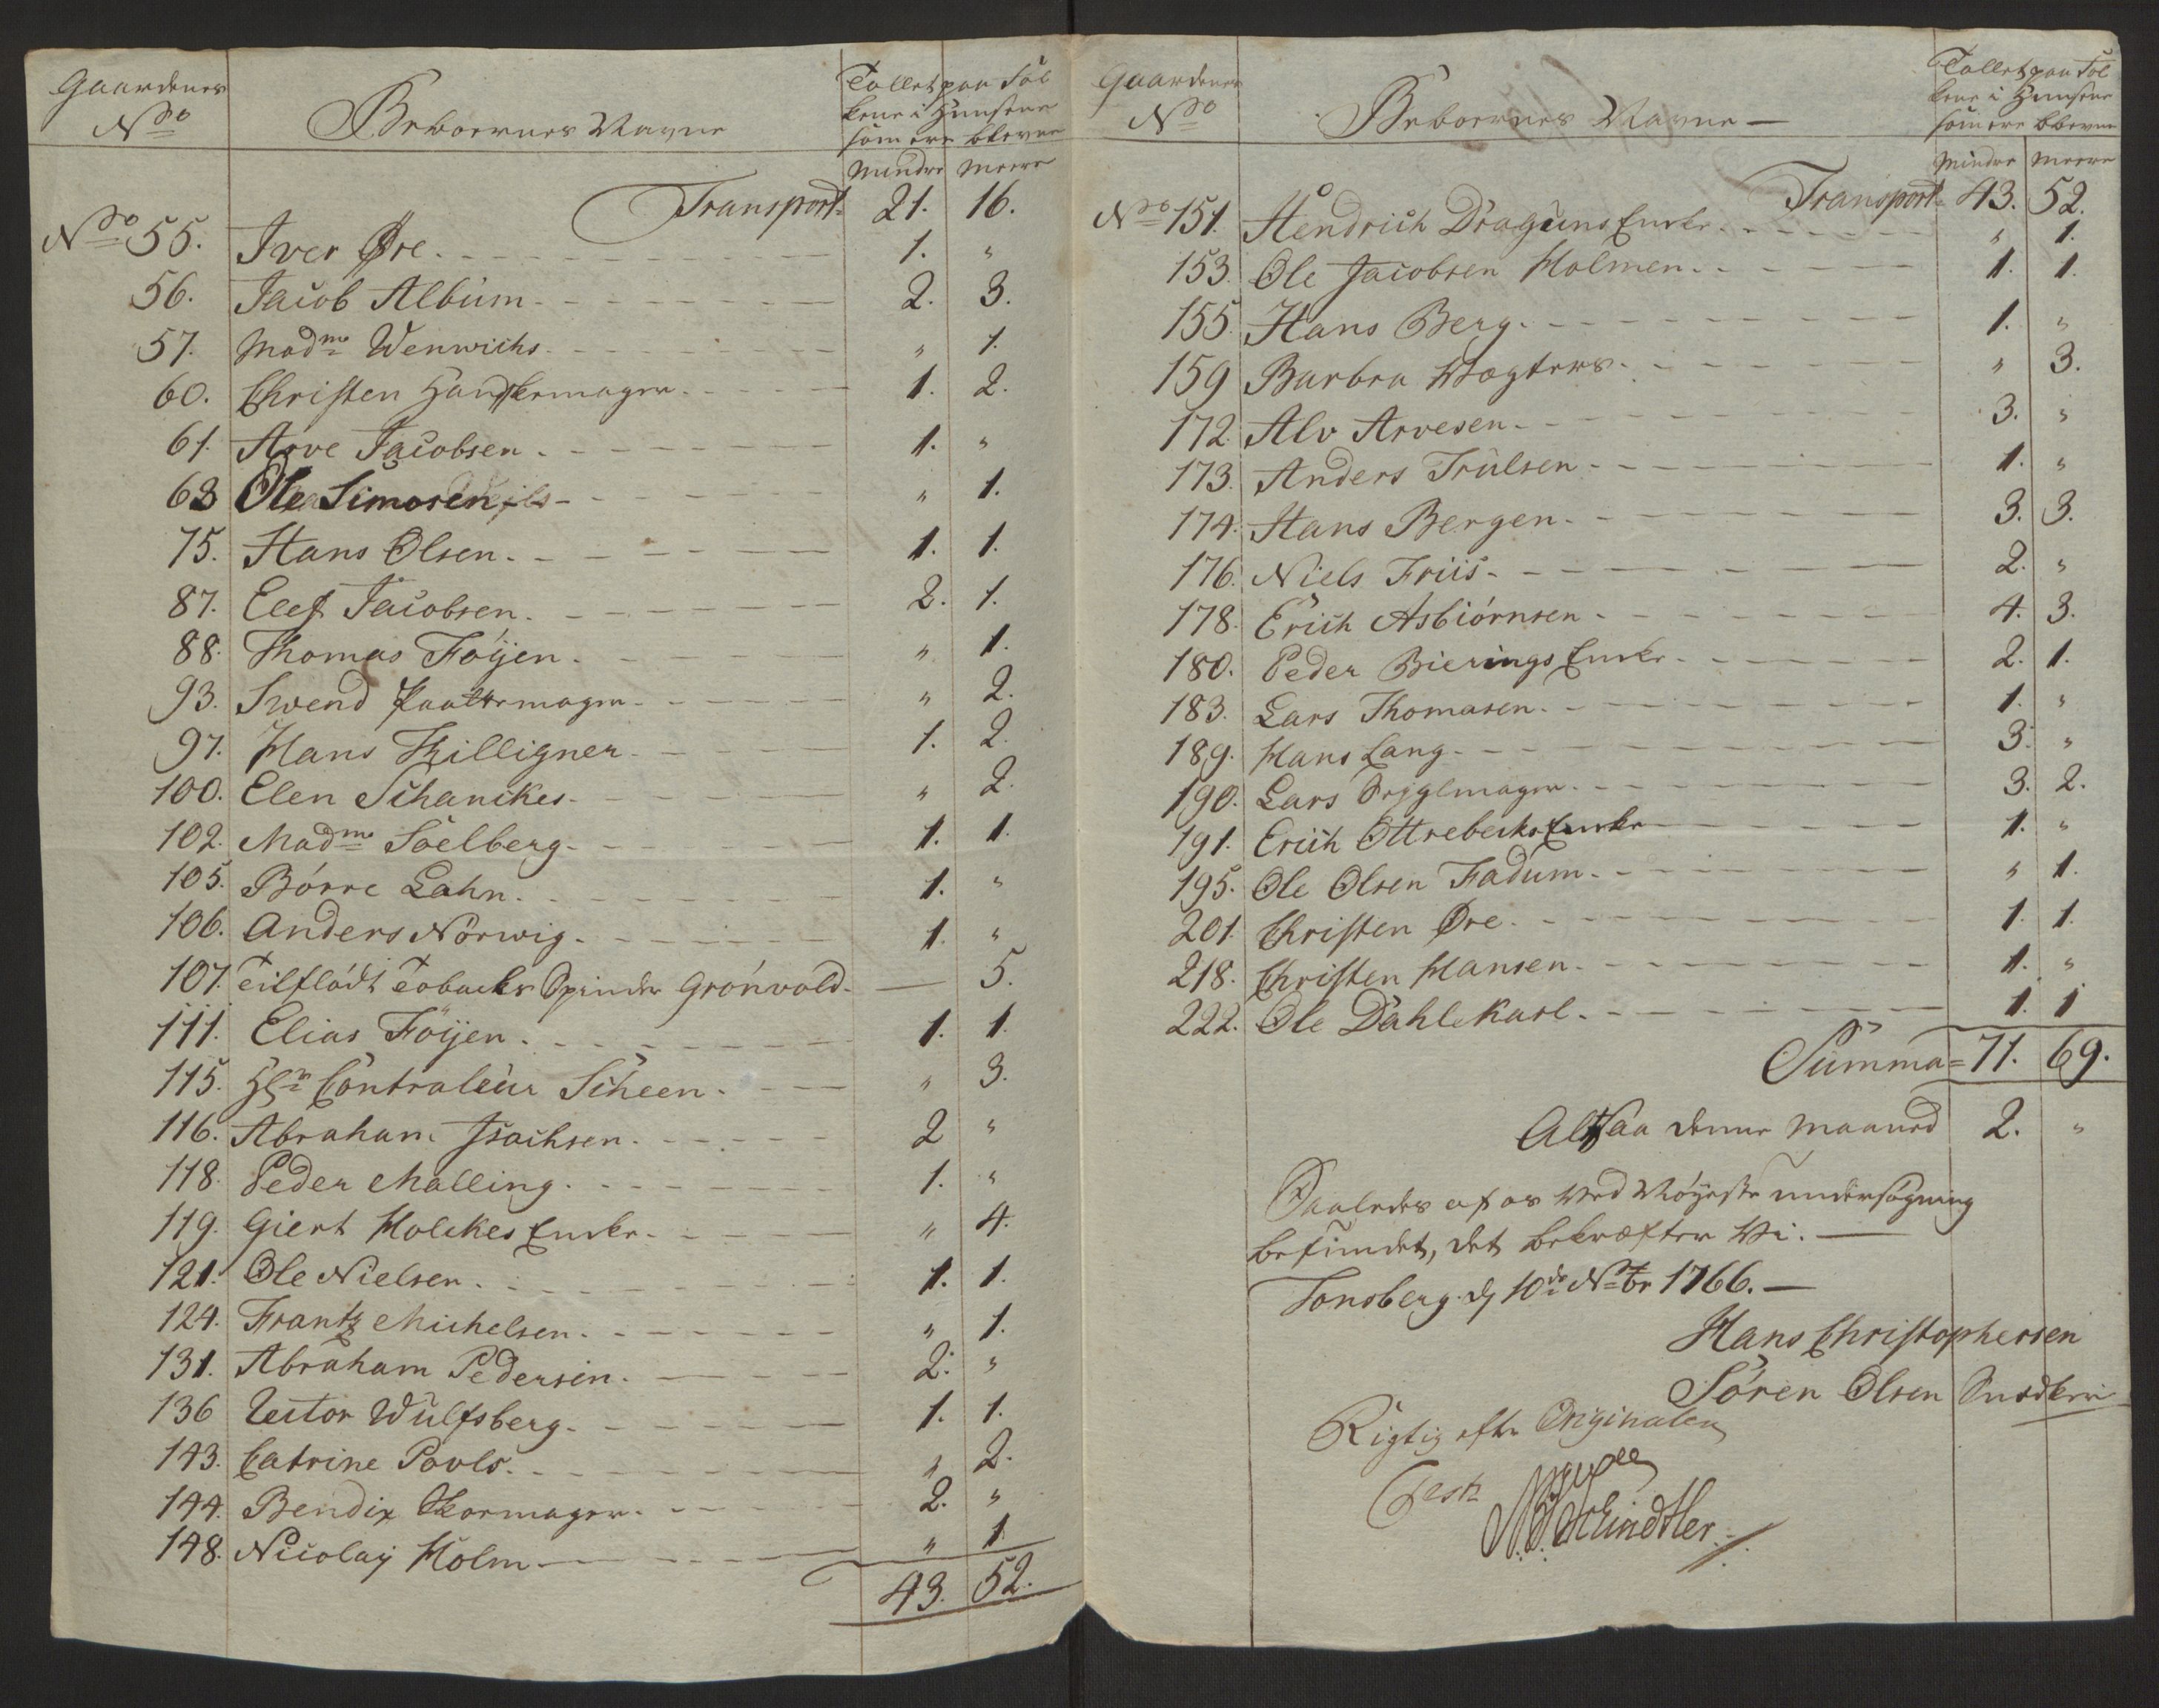 Gaardenes
No
Beboernes Navne
Tallet paa Fol
kene i Huusene
som ere blevne
Mindre Meere
Transport 21. 16.
No 55. Iver Øre. 1. "
56. Jacob Album 2. 3.
57. Madme Wenwichs " 1.
60. Christen Handskemager 1. 2.
61. Arve Jacobsen 1. "
63 Ole Simosen " 1.
75. Hans Olsen 1. 1.
87. Elef Jacobsen 2. 1.
88. Thomas Föÿen " 1.
93. Swend Pottemager " 2.
97. Hans Killigner 1. 2.
100. Elen Schanckes " 2.
102. Madme Söelberg 1. 1.
105. Börre Lahn 1. "
106. Anders Nörwig 1. "
107. Tilflödt Tobacks Spinder Grönvold — 5.
111. Elias Föÿen 1. 1.
115. Hr Contraleur Scheen " 3.
116. Abraham Isachsen 2 "
118. Peder Malling 1. "
119. Giert Holckes Enke " 4.
121. Ole Nielsen 1. 1.
124. Frantz Michelsen " 1.
131. Abraham Pedersen 2. "
136 Uctor Wulfsberg 1. 1.
143. Catrine Povls " 2.
144. Bendix Skoemager 2. "
148. Nicolaÿ Holm " 1.
43. 52.
Gaardenes
No
Beboernes Navne
Tallet paa Fol
kene i Huusene
som ere blevne
Mindre Meere
Transport 43. 52.
No 151. Hendrich Draguns Enke " 1.
153. Ole Jacobsen Holmen 1. 1.
155. Hans Berg 1. "
159 Barbra Wogters " 3.
172. Alv Arvesen 3. "
173. Anders Trulsen 1. "
174. Hans Bergen 3. 3.
176. Niels Friis 2. "
178. Erich Asbiörnsen 4. 3.
180. Peder Bierings Enke 2. 1.
183. Lars Thomasen 1. "
189. Hans Lang 3. "
190. Lars Sejglmager 3. 2.
191. Erich Ottrebecks Enke 1. "
195. Ole Olsen Fadum " 1.
201. Christen Øre 1. 1.
218. Christen Hansen 1. "
222. Ole Dahlekarl 1. 1
Summa = 71. 69.
Altsaa denne Maaned 2. "
Saaledes af os ved Nöÿeste undersögning
befundet, det bekræfter Vi. —
Tonsberg d 10de Nobr 1766. —
Hans Christophersen
Sören Olsen Snedker
Rigtig efter Originalen
Test